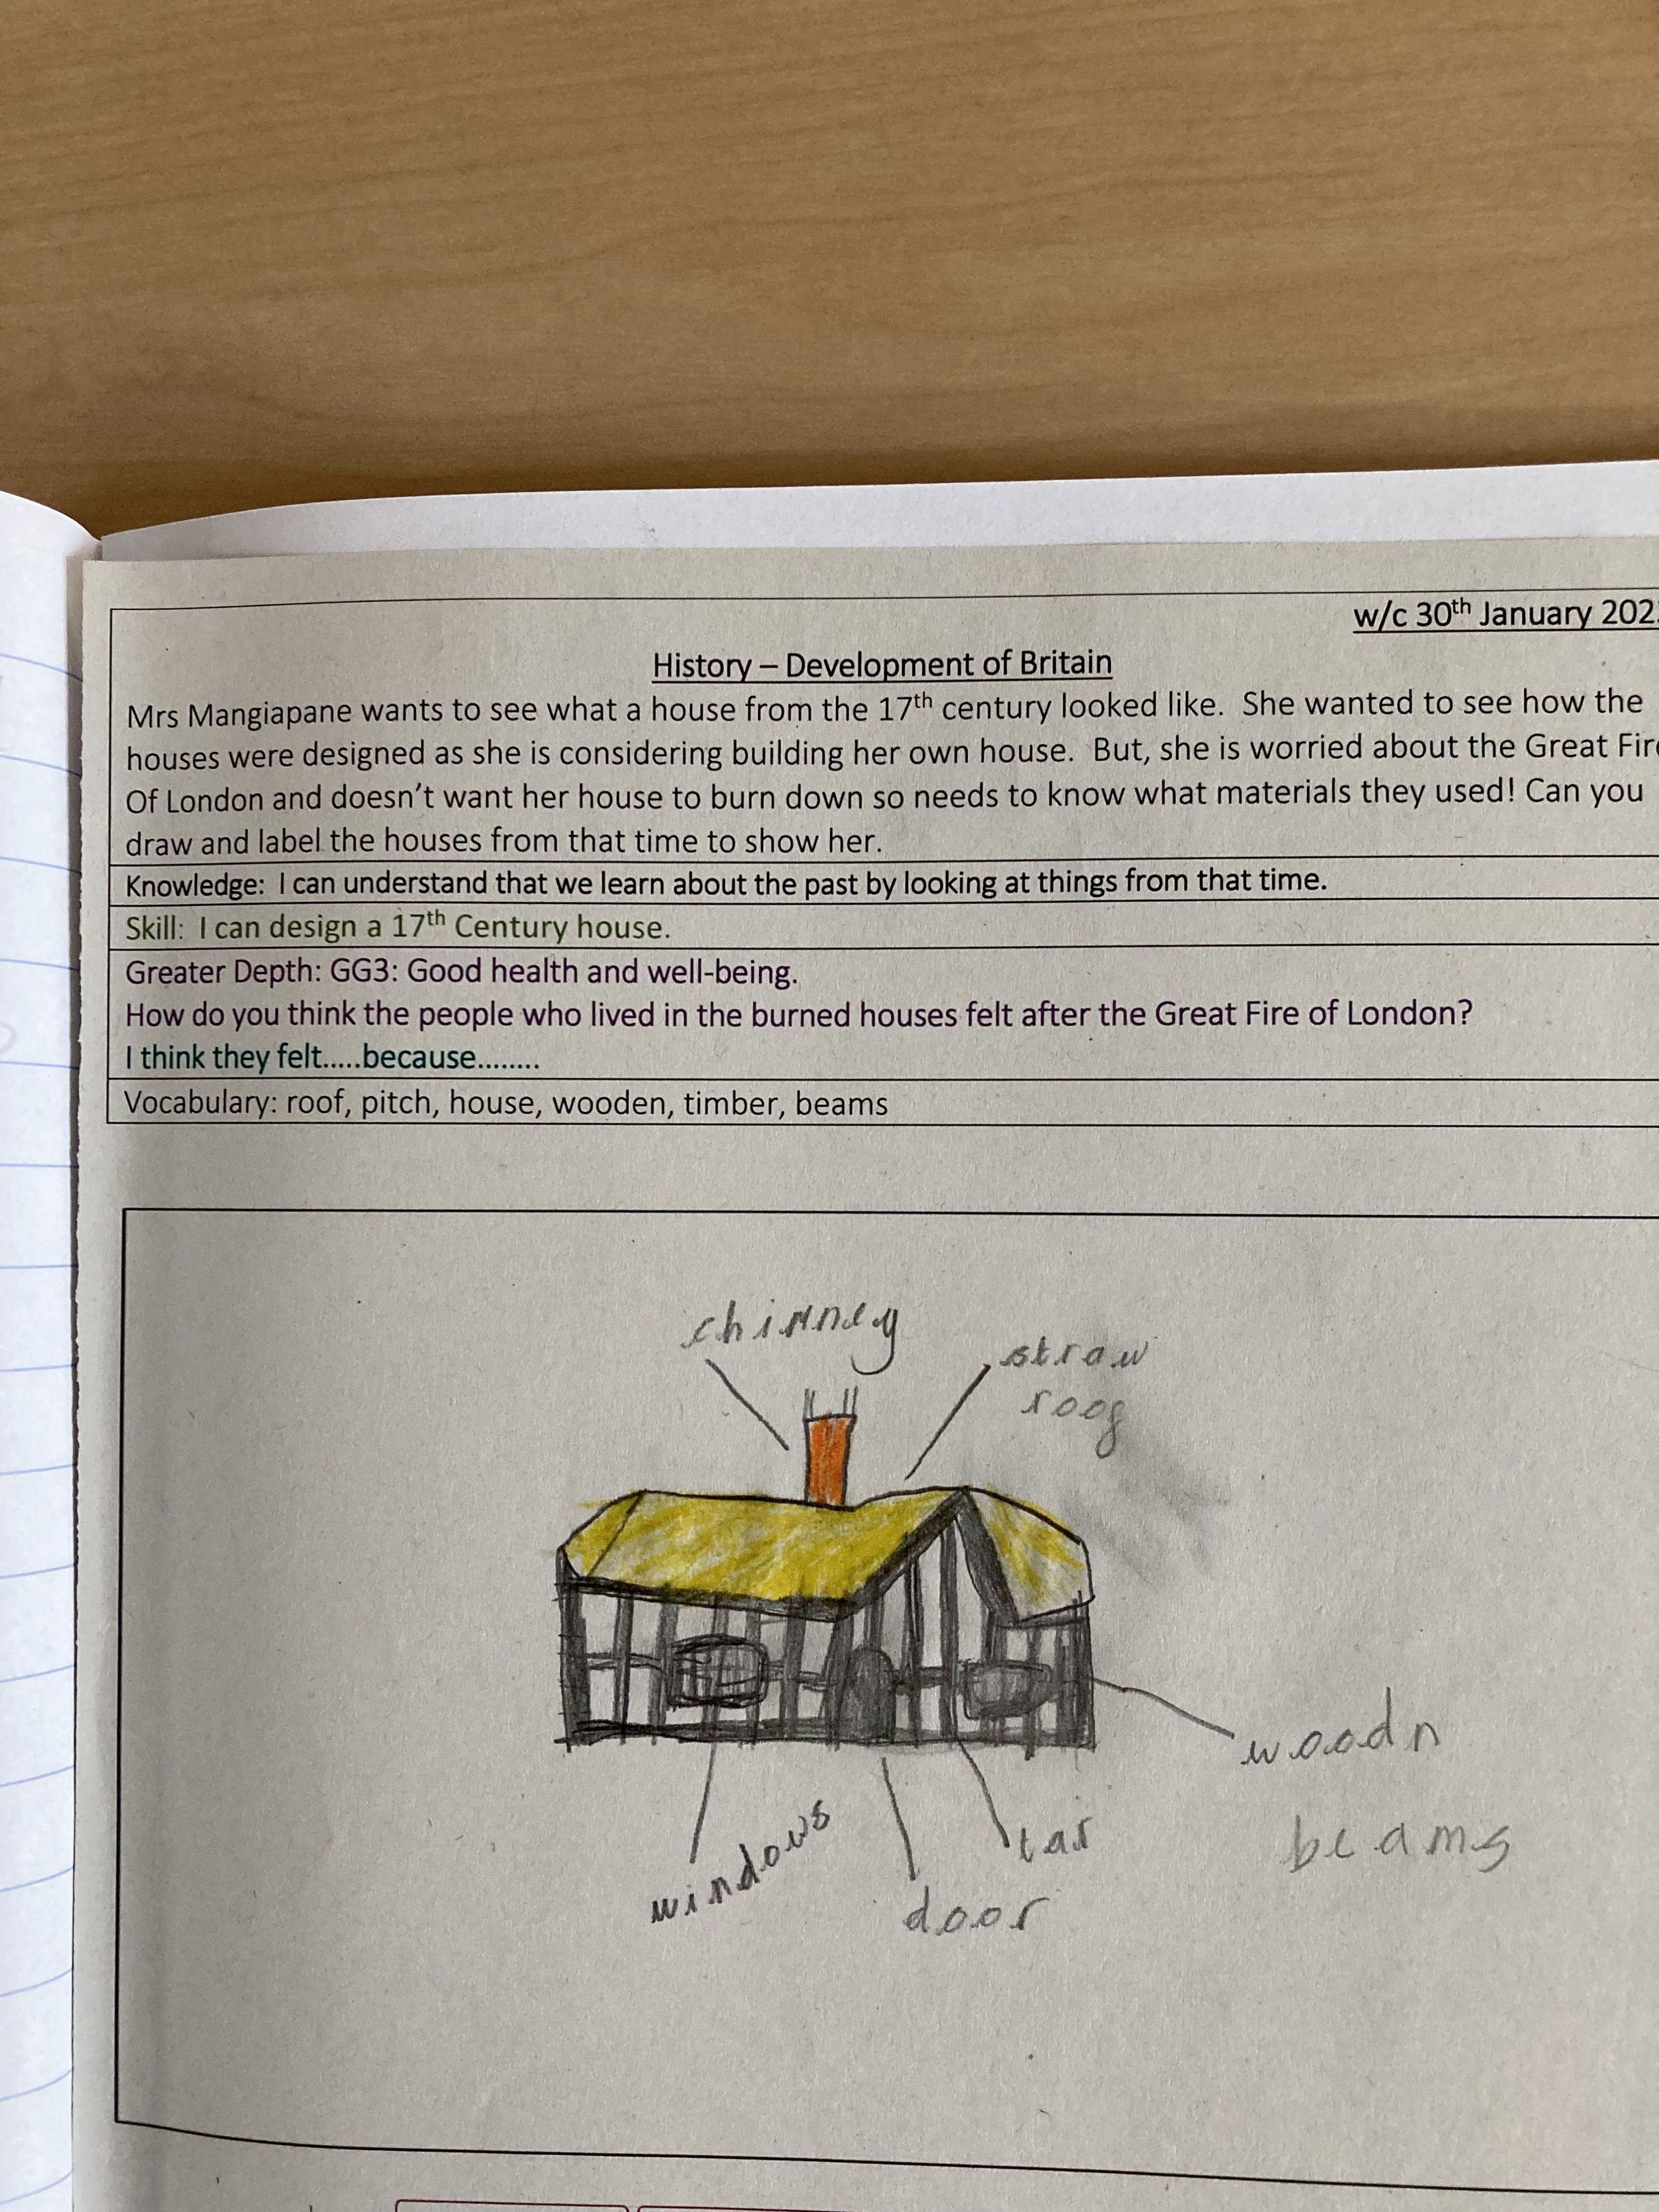 w/c 30th January 202
History – Development of Britain
Mrs Mangiapane wants to see what a house from the 17th century looked like. She wanted to see how the
houses were designed as she is considering building her own house. But, she is worried about the Great Fire
Of London and doesn't want her house to burn down so needs to know what materials they used! Can you
draw and label the houses from that time to show her.
Knowledge: I can understand that we learn about the past by looking at things from that time.
Skill: I can design a 17th Century house.
Greater Depth: GG3: Good health and well-being.
How do you think the people who lived in the burned houses felt after the Great Fire of London?
I think they felt.....because........
Vocabulary: roof, pitch, house, wooden, timber, beams
chimney
straw
roof
woodn
beams
windows
tar
door